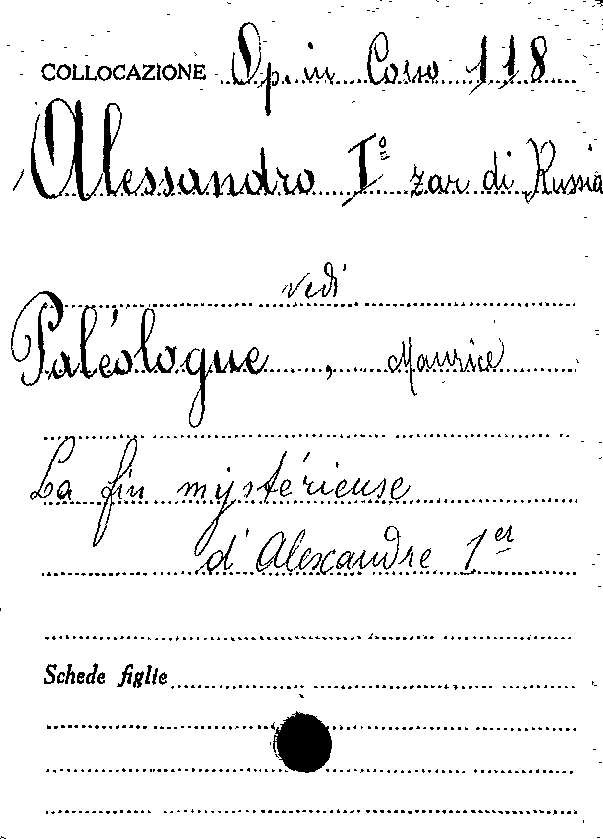 COLLOCAZIONE Op. in Corso 118
Alessandro Iº zar di Russia
vedi
Paléologue, Maurice
La fin mystérieuse
d'Alexandre 1er
Schede figlie